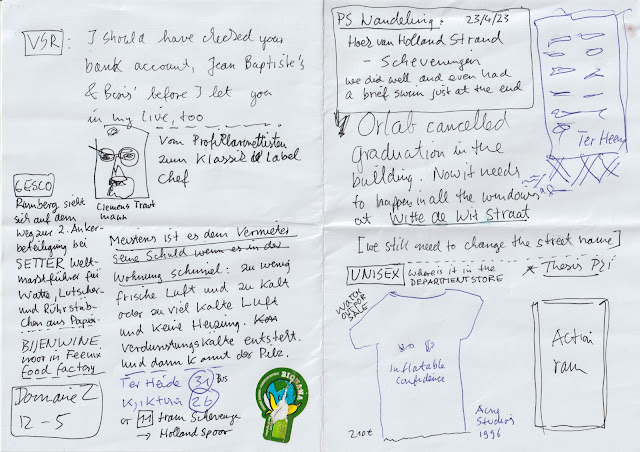 VSR: I should have checked your
bank account, Jean Baptiste's
& Bens' before I let you
in my live, too
Vom Profiklarinettisten
zum Klassik Label
Chef
Clemens Traut
mann
GESCO
Ramberg, sieht
sich auf dem
Weg zur 2. Anker-
beteiligung bei
SETTER Welt-
marktführer für
Watte, Lutscher-
und Rührstäb-
chen aus Papier
BIJENWINE
voor in Feenix
food factory
Domaine Z
12-5
Meistens ist es dem Vermieter
seine Schuld wenn es in der
Wohnung schimmel: zu wenig
frische Luft und zu kalt
oder zu viel kalte Luft
und keine Heizung.
Verdunstungskälte entsteht.
und dann kommt der Pilz.
Ter Heide 31 BIS
26
or 11 tram Schevenge
→ Holland Spoor
PS Wandeling: 23/4/23
Hoek van Holland Strand
- Scheveningen
we did well and even had
a brief swim just at the end
Ter Heide
Orlab cancelled
graduation in the
building. Now it needs
to happen in all the windows
at Witte de Wit Straat
[we still need to change the street name]
UNISEX where is it in the
DEPARTMENT STORE
* Thesis PZI
WATCH
OUT FOR
SALE
Inflatable
Confidence
210€
Acne
Studios
1996
Action
ram